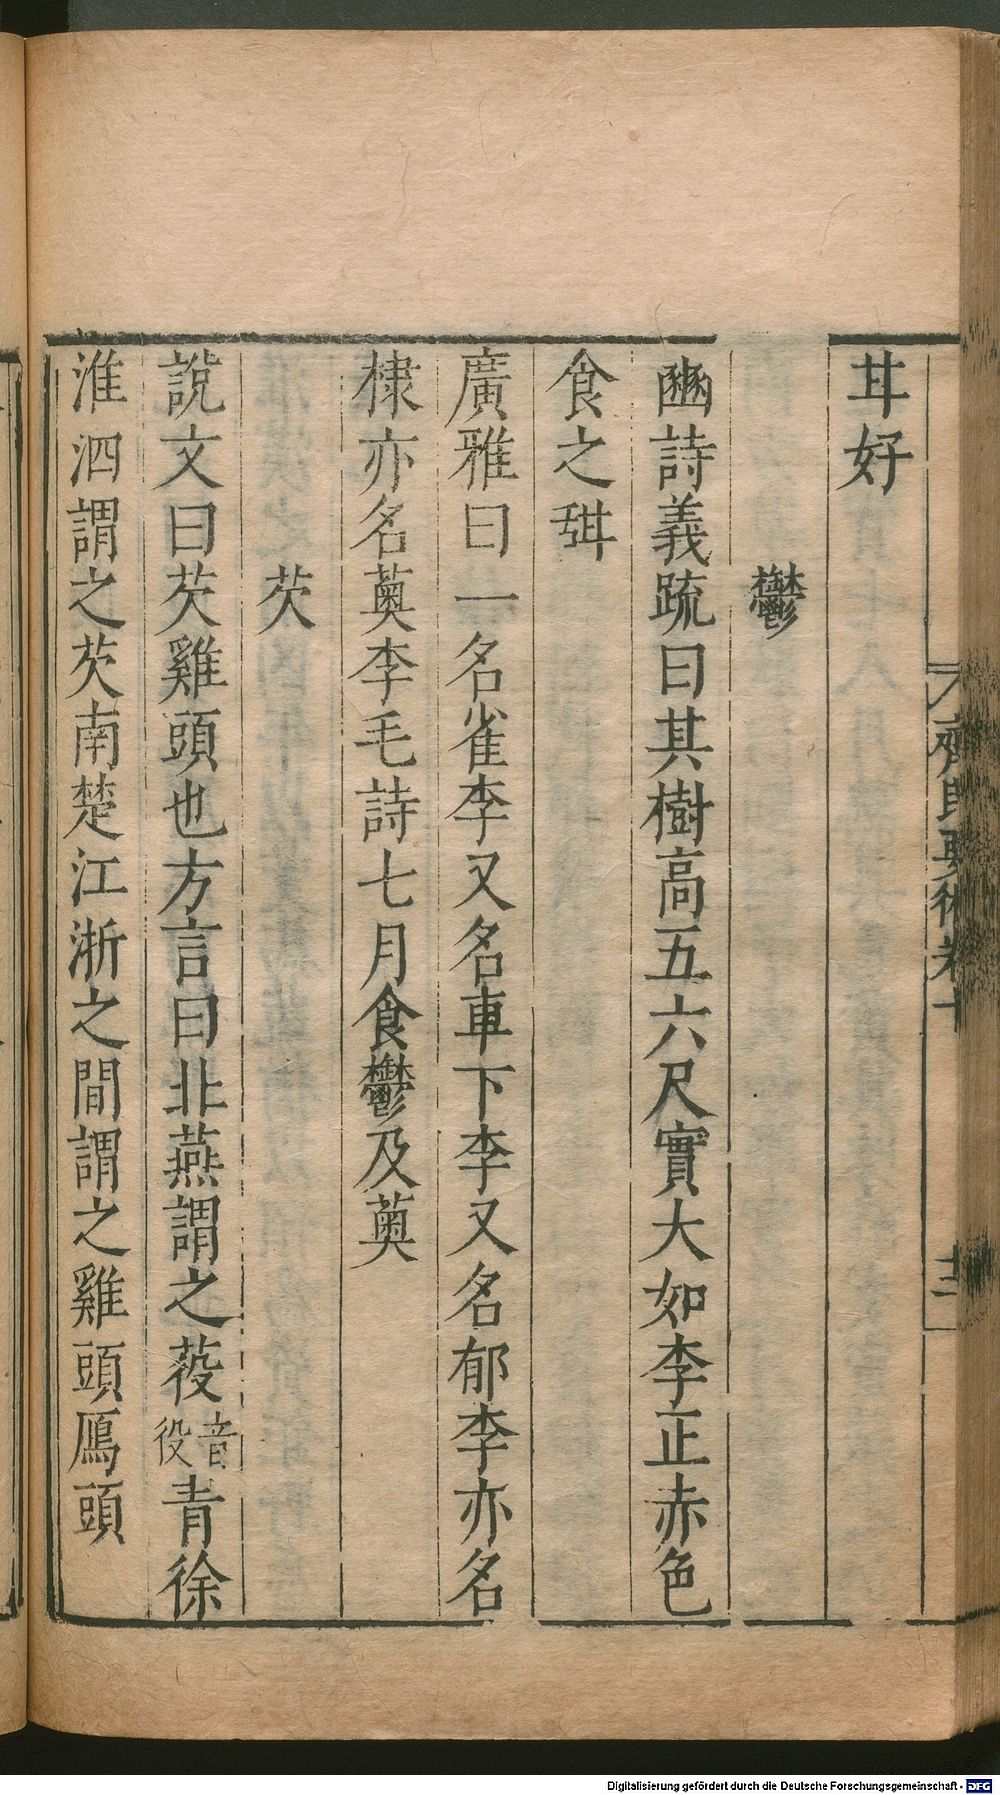 甘好
鬱
豳詩義疏曰其樹髙五六尺實大如李正赤色
食之甜
廣雅曰一名雀李又名車下李又名郁李亦名
棣亦名薁李毛詩七月食鬱及薁
芡
說文曰芡雞頭也方言曰北燕謂之䓈音役青徐
淮泗謂之芡南楚江浙之間謂之雞頭鴈頭
齊民要術卷十
十三
Digitalisierung gefördert durch die Deutsche Forschungsgemeinschaft - DFG